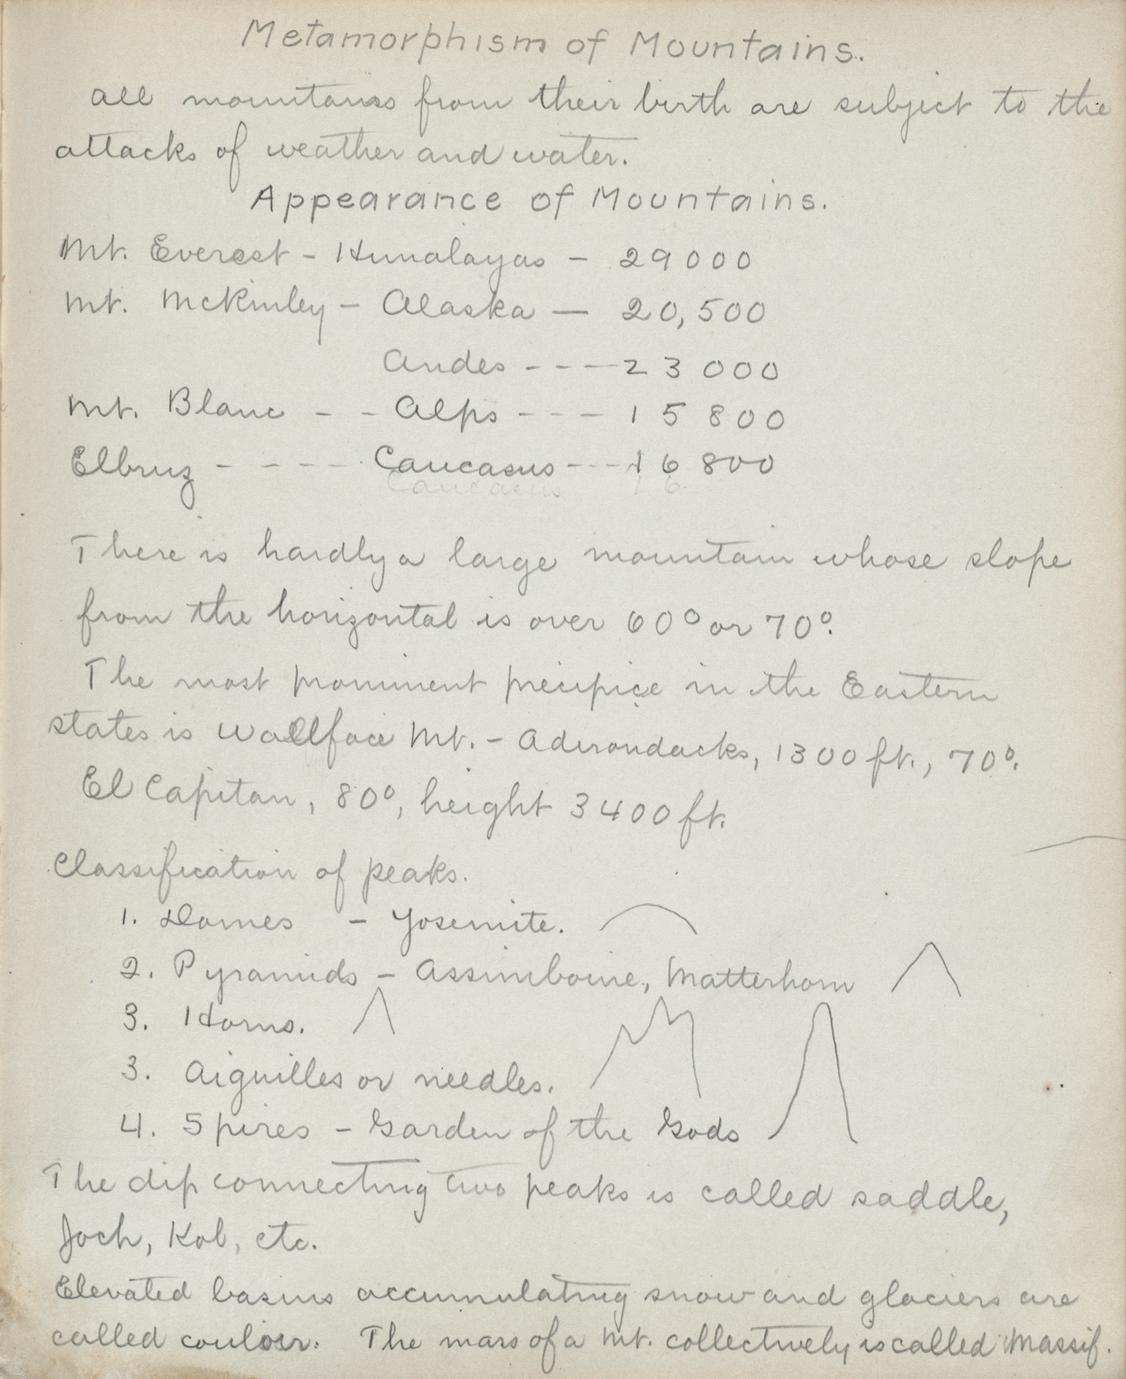 Metamorphism of Mountains.
All mountains from their birth are subject to the
attacks of weather and water.
Appearance of Mountains.
Mt. Everest - Himalayas - 29000
Mt. McKinley - Alaska - 20,500
Andes - - - - 23000
Mt. Blanc - - Alps - - - 15800
Elbruz - - - - - Caucasus - - - 16800
Caucasus 16
There is hardly a large mountain whose slope
from the horizontal is over 60° or 70°.
The most prominent precipice in the Eastern
states is Wallface Mt. - Adirondacks, 1300 ft., 70°.
El Capitan, 80°, height 3400 ft.
Classification of peaks.
1. Domes - Yosemite.
2. Pyramids - Assiniboine, Matterhorn
3. Horns.
3. Aiguilles or needles.
4. Spires - Garden of the Gods
The dip connecting two peaks is called saddle,
Joch, Kol, etc.
Elevated basins accumulating snow and glaciers are
called couloir. The mass of a Mt. collectively is called Massif.